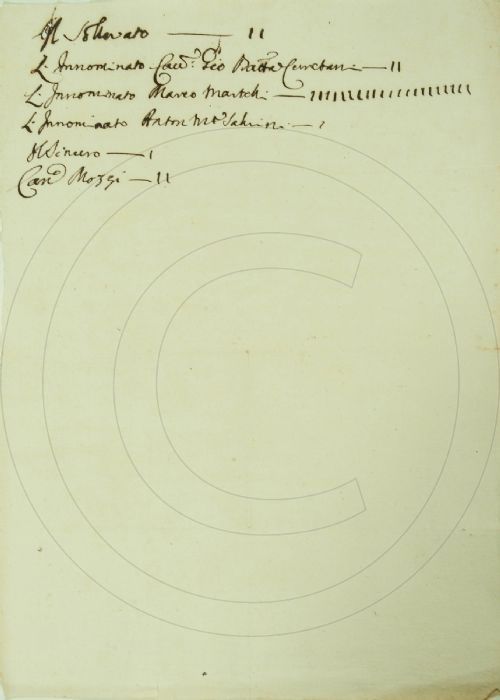 Il Sollevato — II
L'Innominato Cav.r Gio Batta Cerretani — II
L'Innominato Marco Martelli — IIIIIIIIIIIIIIIIII
L'Innominato Anton Mª Salvini — I
Il Sincero — I
Can.co Mozzi — II